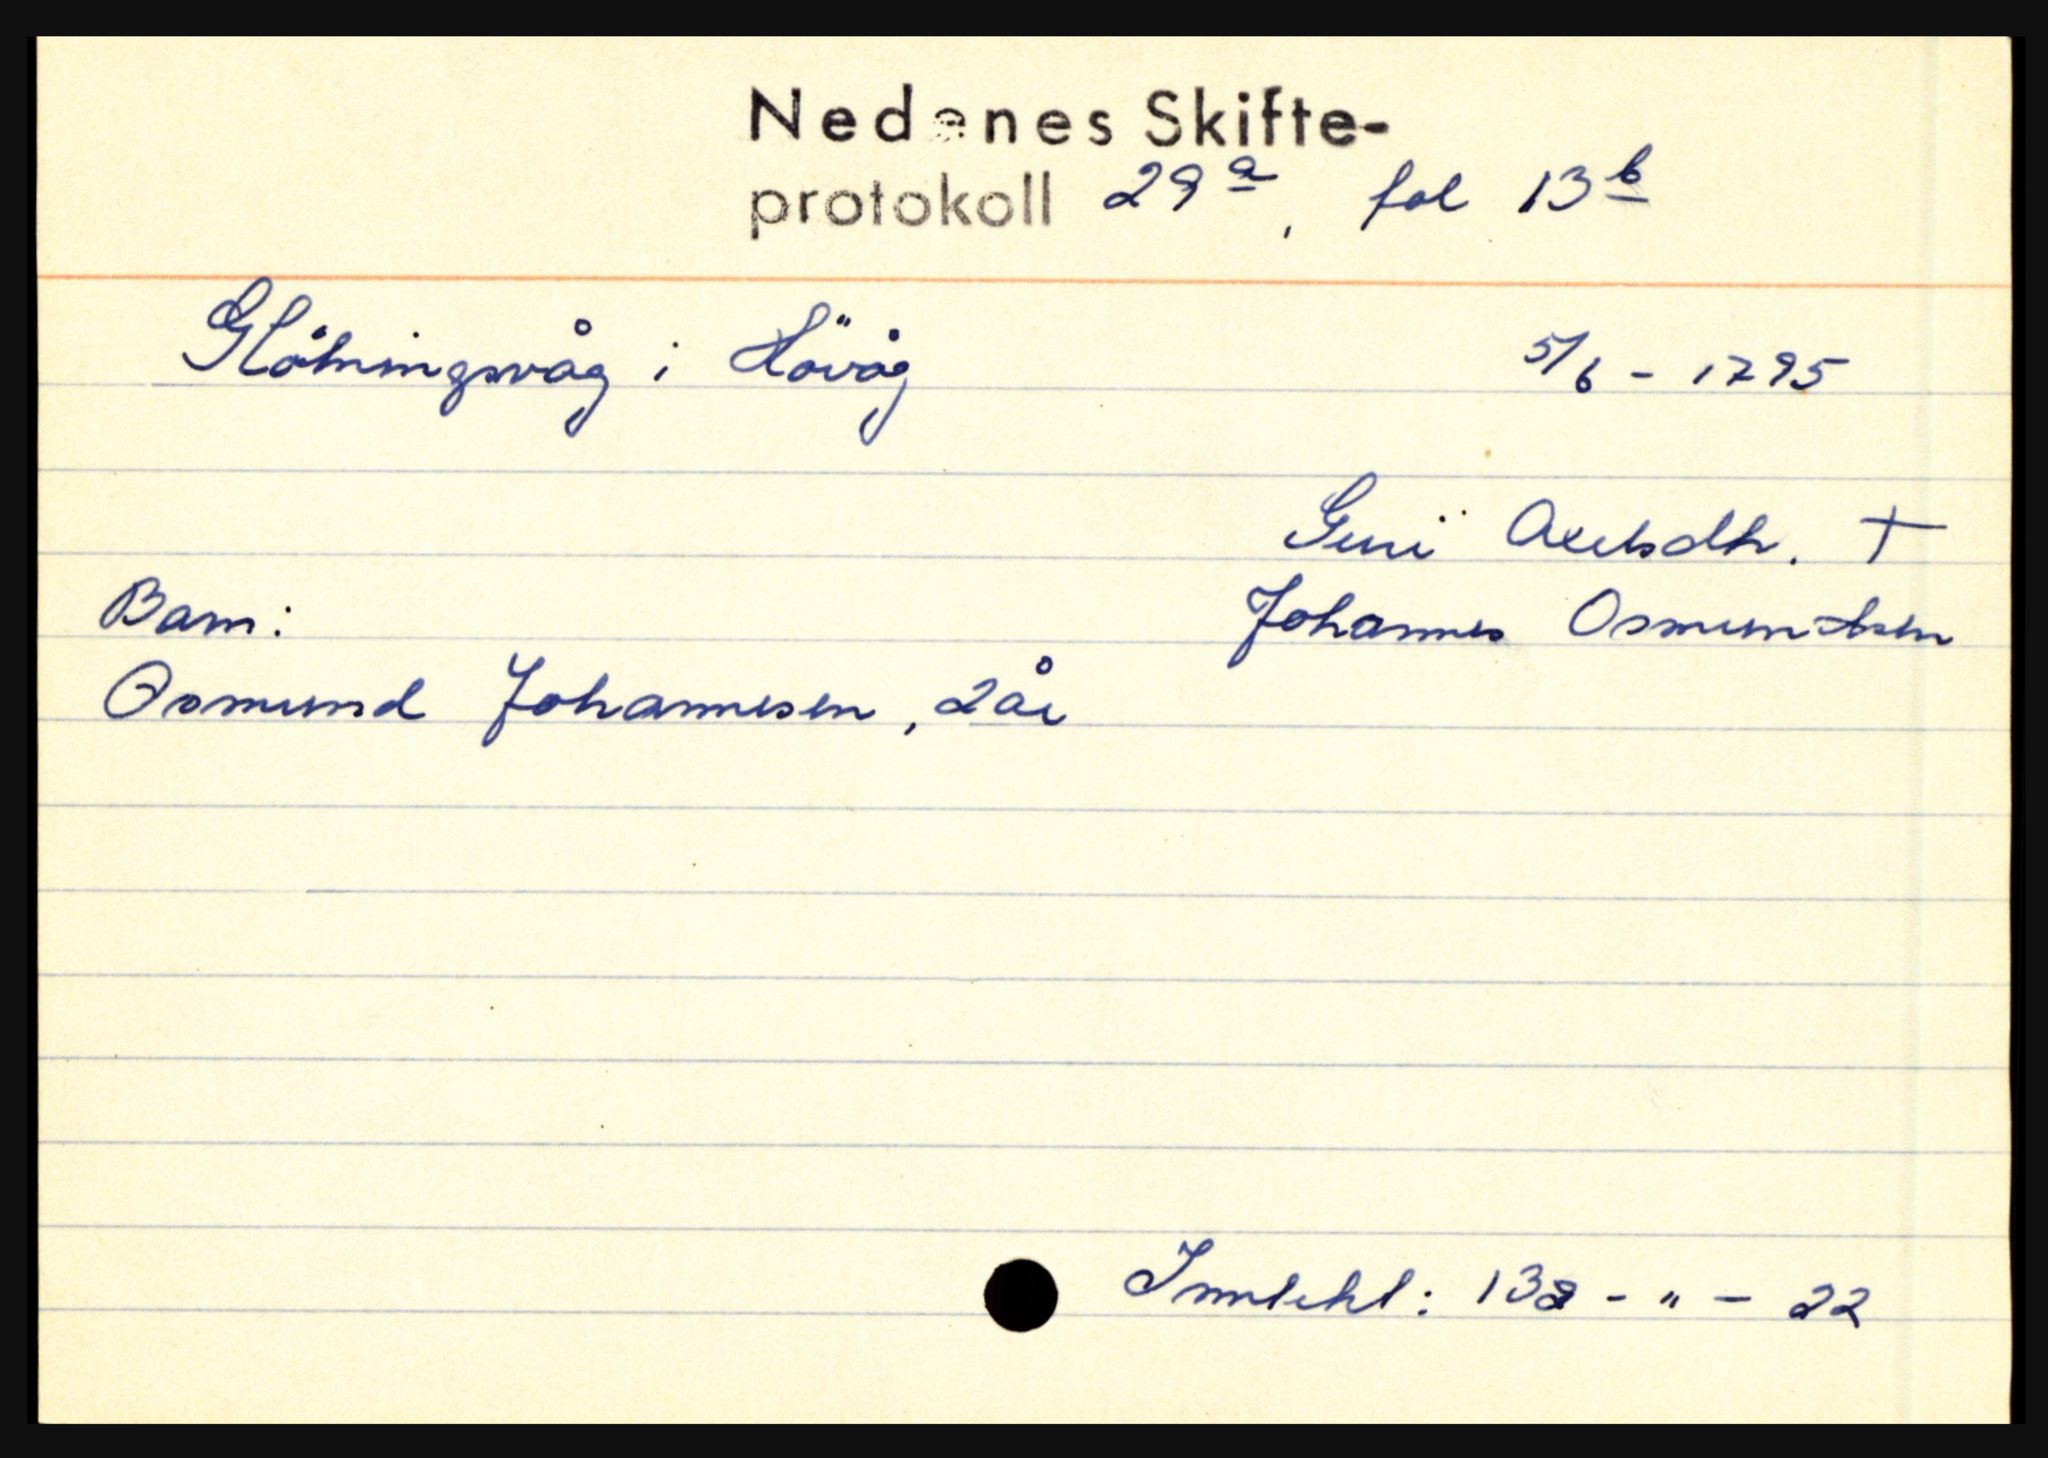 Nedenes Skifte-
protokoll 29a, fol 13b
Glåmingsvåg i Høvåg 5/6 - 1795
Guri Axelsdtr. †
Barn: Johannes Osmundsen
Osmund Johannesen, 2 år
Inntekt: 132 - " - 22